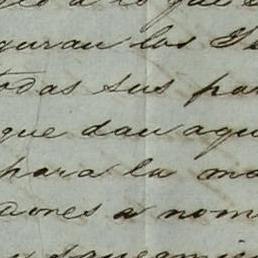 a lo que
guran los
todas sus par
que dan aqu
para la ma
dores a nom